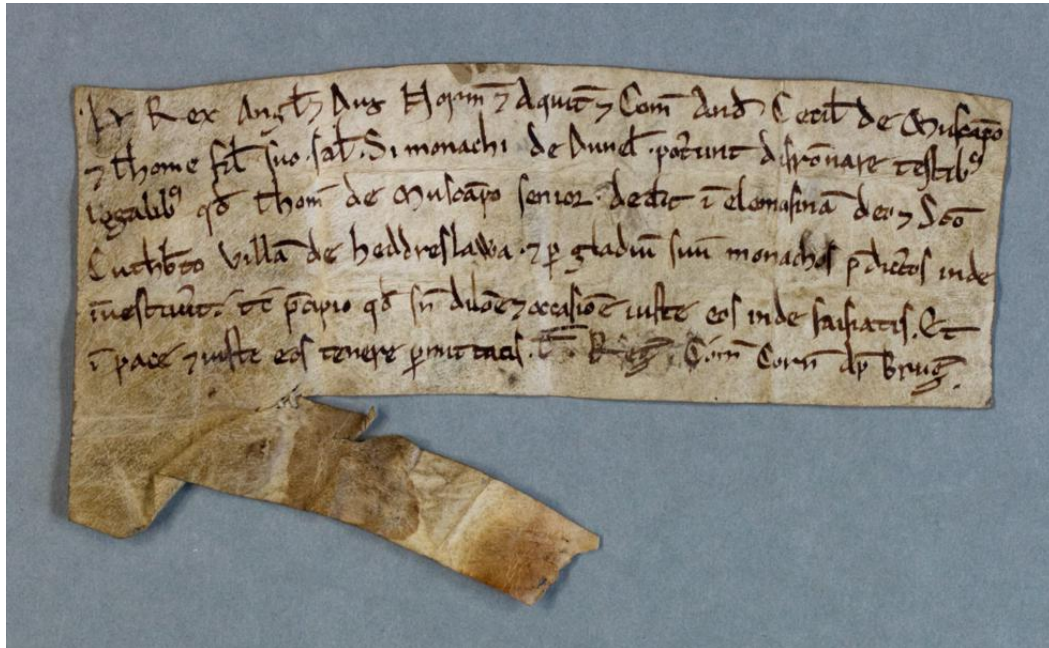 ·H· Rex Angl̄ ⁊ Dux Norm̄ ⁊ Aquit̄ ⁊ Com̄ And̄ Cecil̄ de Muscāpo
⁊ Thome fil̄ suo · sal̄ · Si monachi de Dunel̄ · pot̄unt disrōnare testibꝰ
legalibꝰ qd̄ Thom̄ de Muscāpo senior · dedit ī elemosinā deo ⁊ Sc̄o
Cuthb̄to villā de heddreslawa · ⁊ ꝑ gladiū suū monachos p̄dictos inde
īuestiuit · t̄ p̄cipio qd̄ sn̄ dilōe ⁊ occasiōe iuste eos inde saisiatis . Et
ī pace ⁊ iuste eos tenere ꝑmittatis . T̄ . Reg̃ . Com̄ Corn̄ ap̄ Brug̃ .